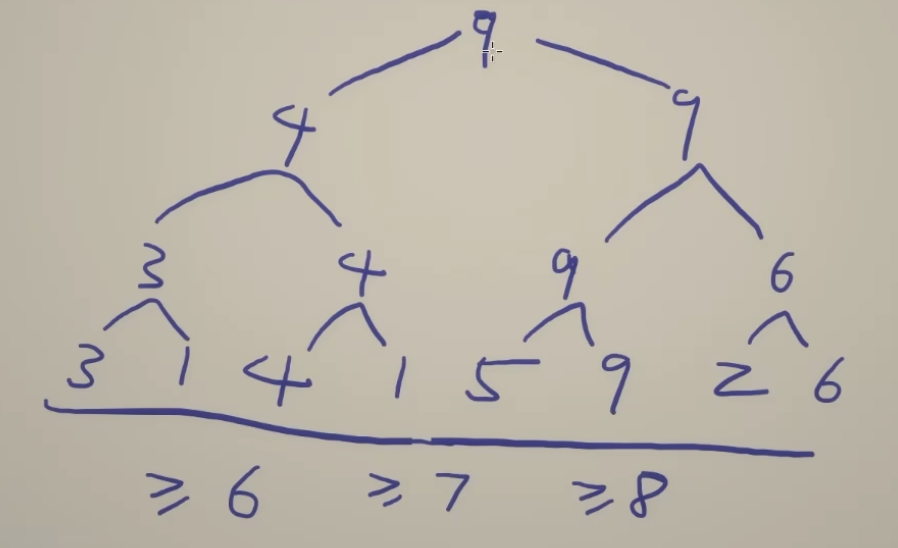 9
4 9
3 4 9 6
3 1 4 1 5 9 2 6
≥ 6 ≥ 7 ≥ 8